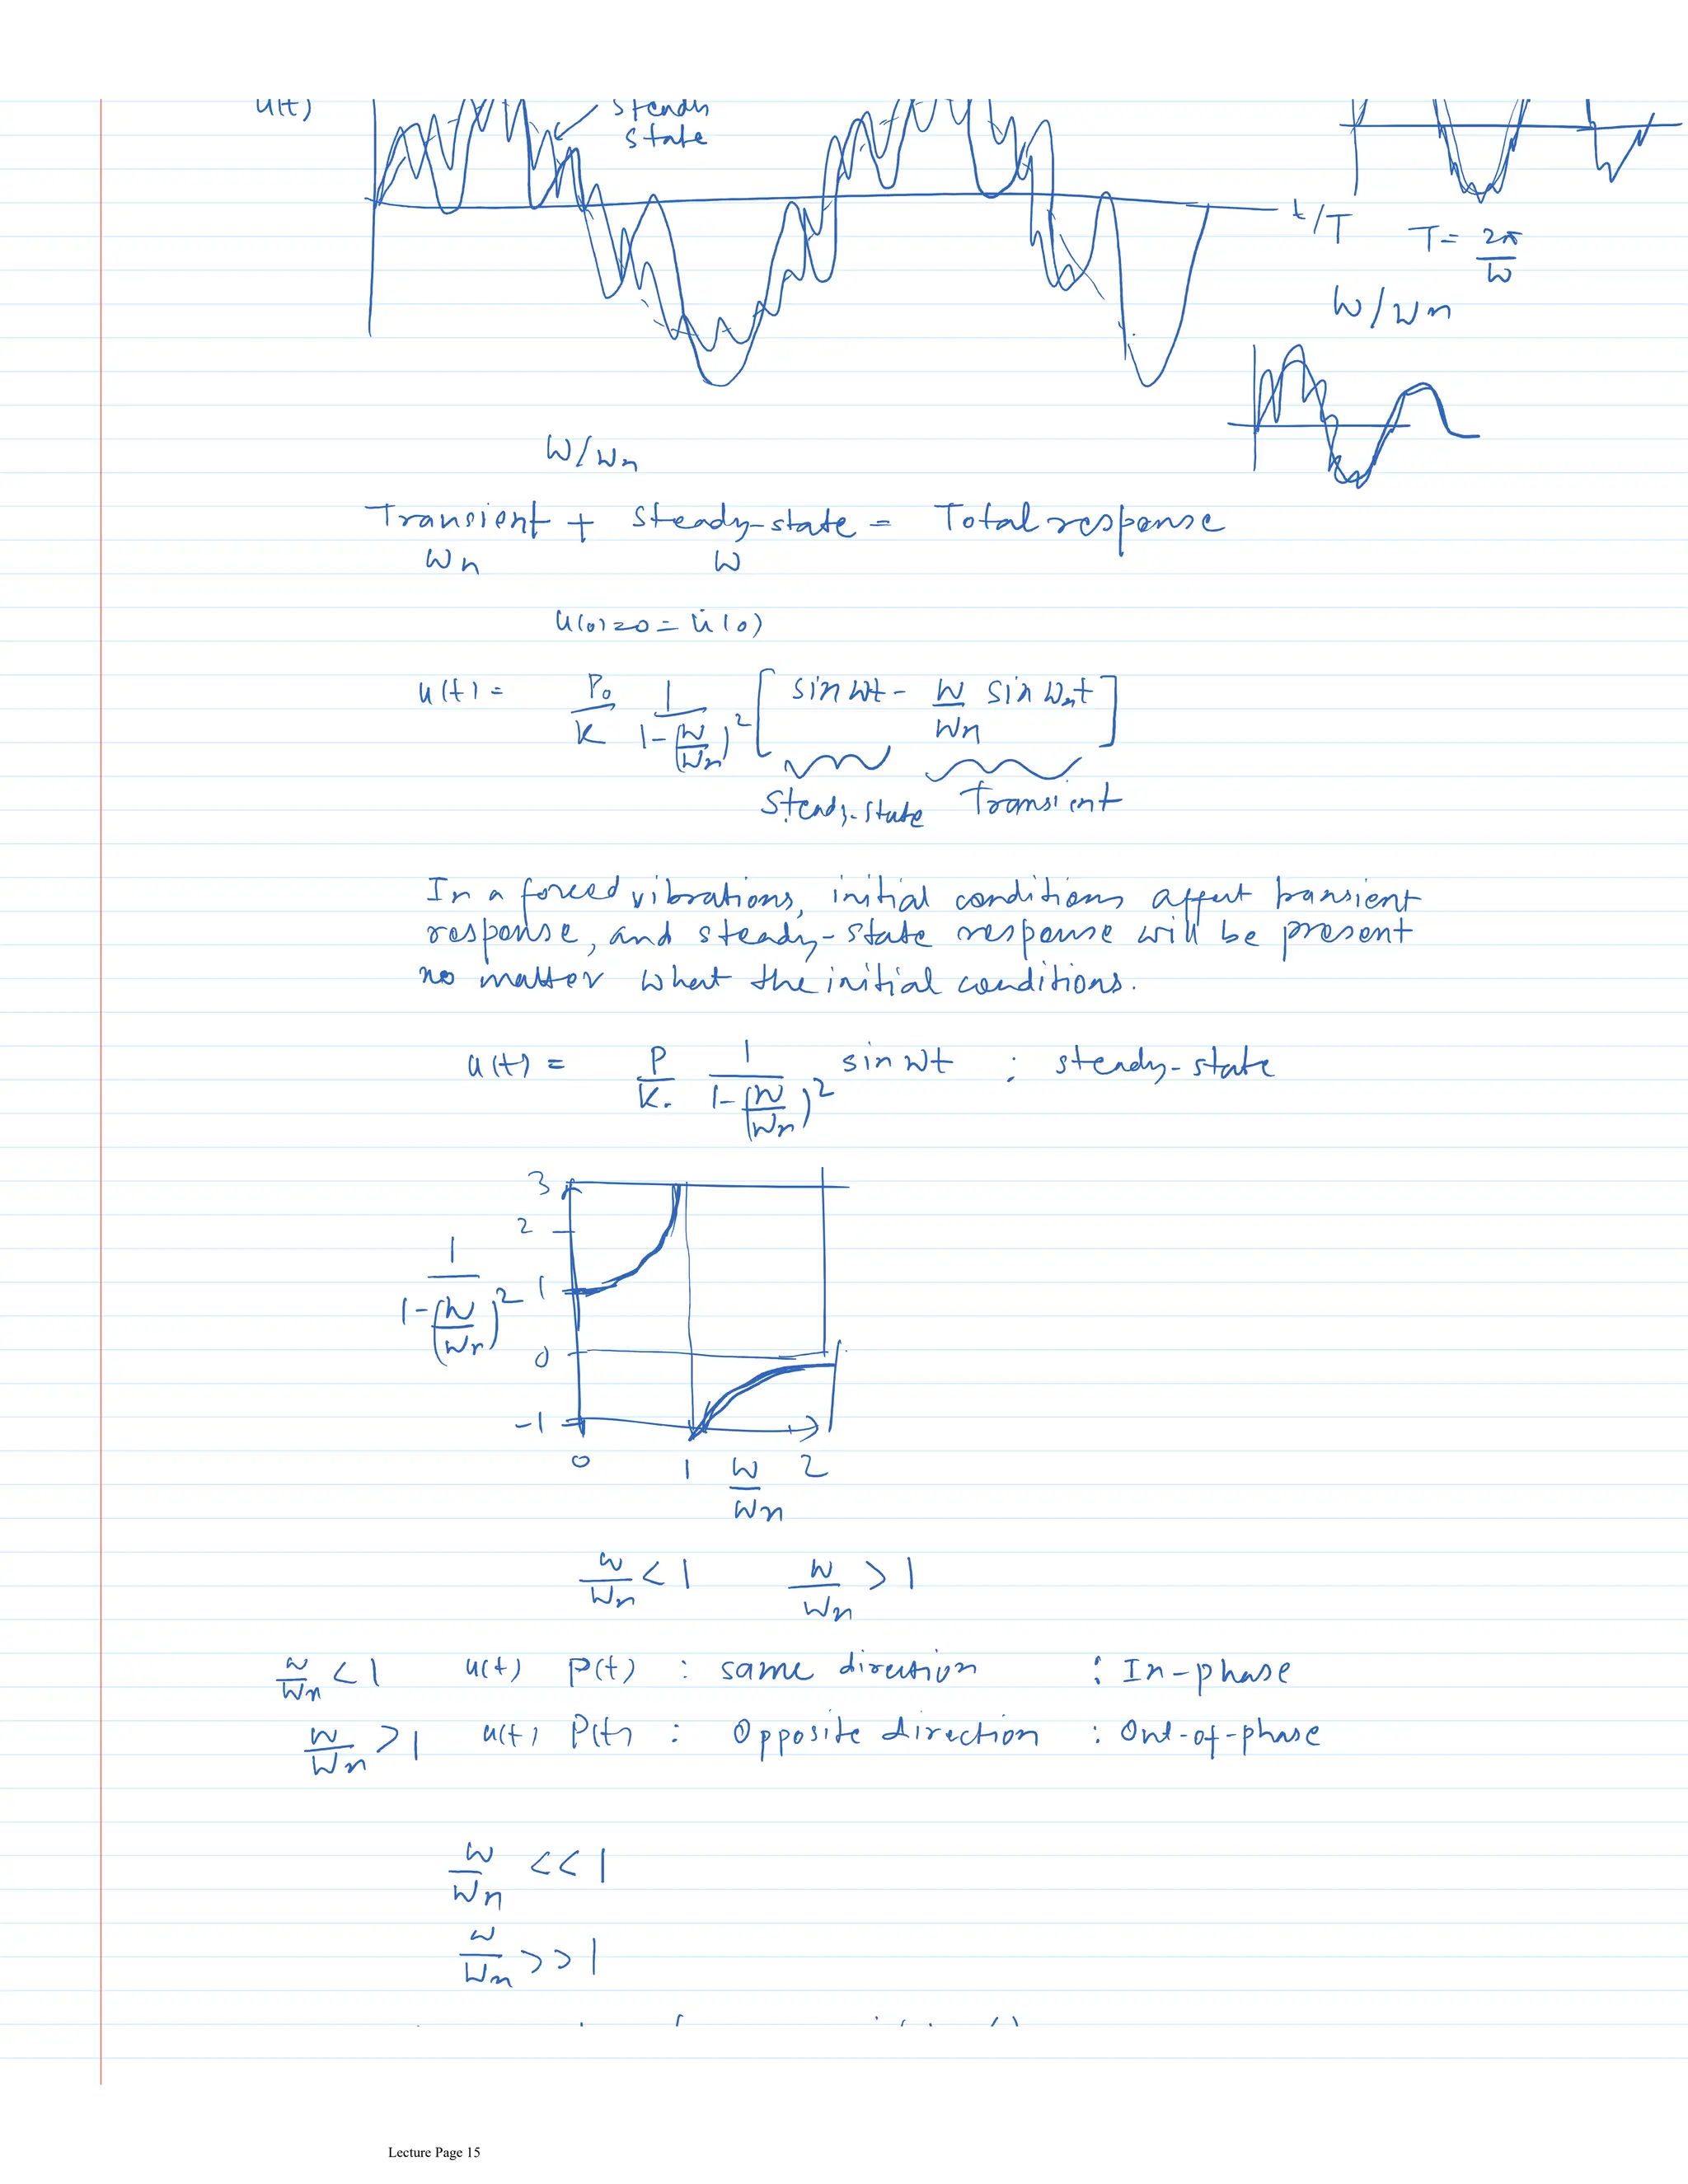 u(t)
steady
state
t/T
T = 2π/ω
ω/ωn
ω/ωn
Transient + Steady-state = Total response
ωn ω
u(0)=0=u̇(0)
u(t) = P₀/K 1/(1-(ω/ωn)²) [sin ωt - ω/ωn sin ωnt]
Steady-state Transient
In a forced vibrations, initial conditions affect transient
response, and steady-state response will be present
no matter what the initial conditions.
u(t) = P/K. 1/(1-(ω/ωn)²) sin ωt : steady-state
3
2
1/(1-(ω/ωn)²) 1
0
-1
0 1 ω/ωn 2
ω/ωn < 1 ω/ωn > 1
ω/ωn < 1 u(t) P(t) : same direction : In-phase
ω/ωn > 1 u(t) P(t) : Opposite direction : Out-of-phase
ω/ωn << 1
ω/ωn >> 1
Lecture Page 15